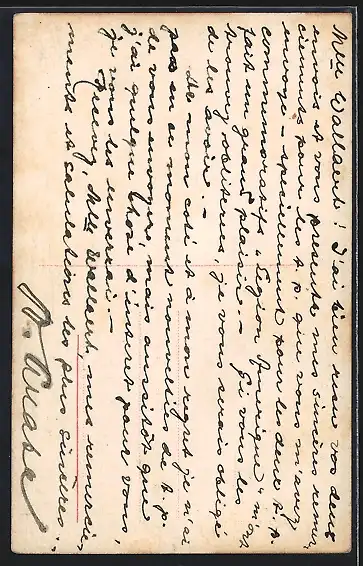 Mlle Wallaert! J'ai bien reçu vos deux
envois et vous présente mes sincères remer-
ciements pour les t. p. que vous m'avez
envoyé - spécialement pour les deux t. p.
commemoratifs "Legion Iberique" m'ont
fait un grand plaisir. - Si vous les
trouvez oblitérés, je vous serais obligé
de les avoir. -
De mon coté et à mon regret je n'ai
pas en ce moment nouvelles de t. p.
de vous envoyer, mais aussitôt que
j'ai quelque chose d'interet pour vous,
je vous les enverrai. -
Recevez, Mlle Wallaert, mes remercie-
ments et salutations les plus sincères.